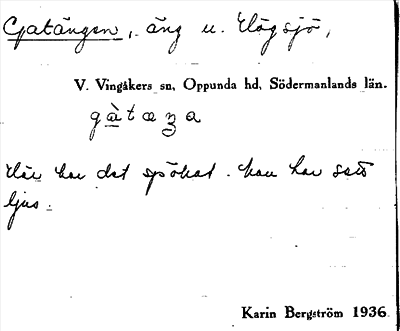 Gatängen, äng u. Högsjö,
V. Vingåkers sn, Oppunda hd, Södermanlands län.
Här har det spökat. Man har sett
ljus.
Karin Bergström 1936.